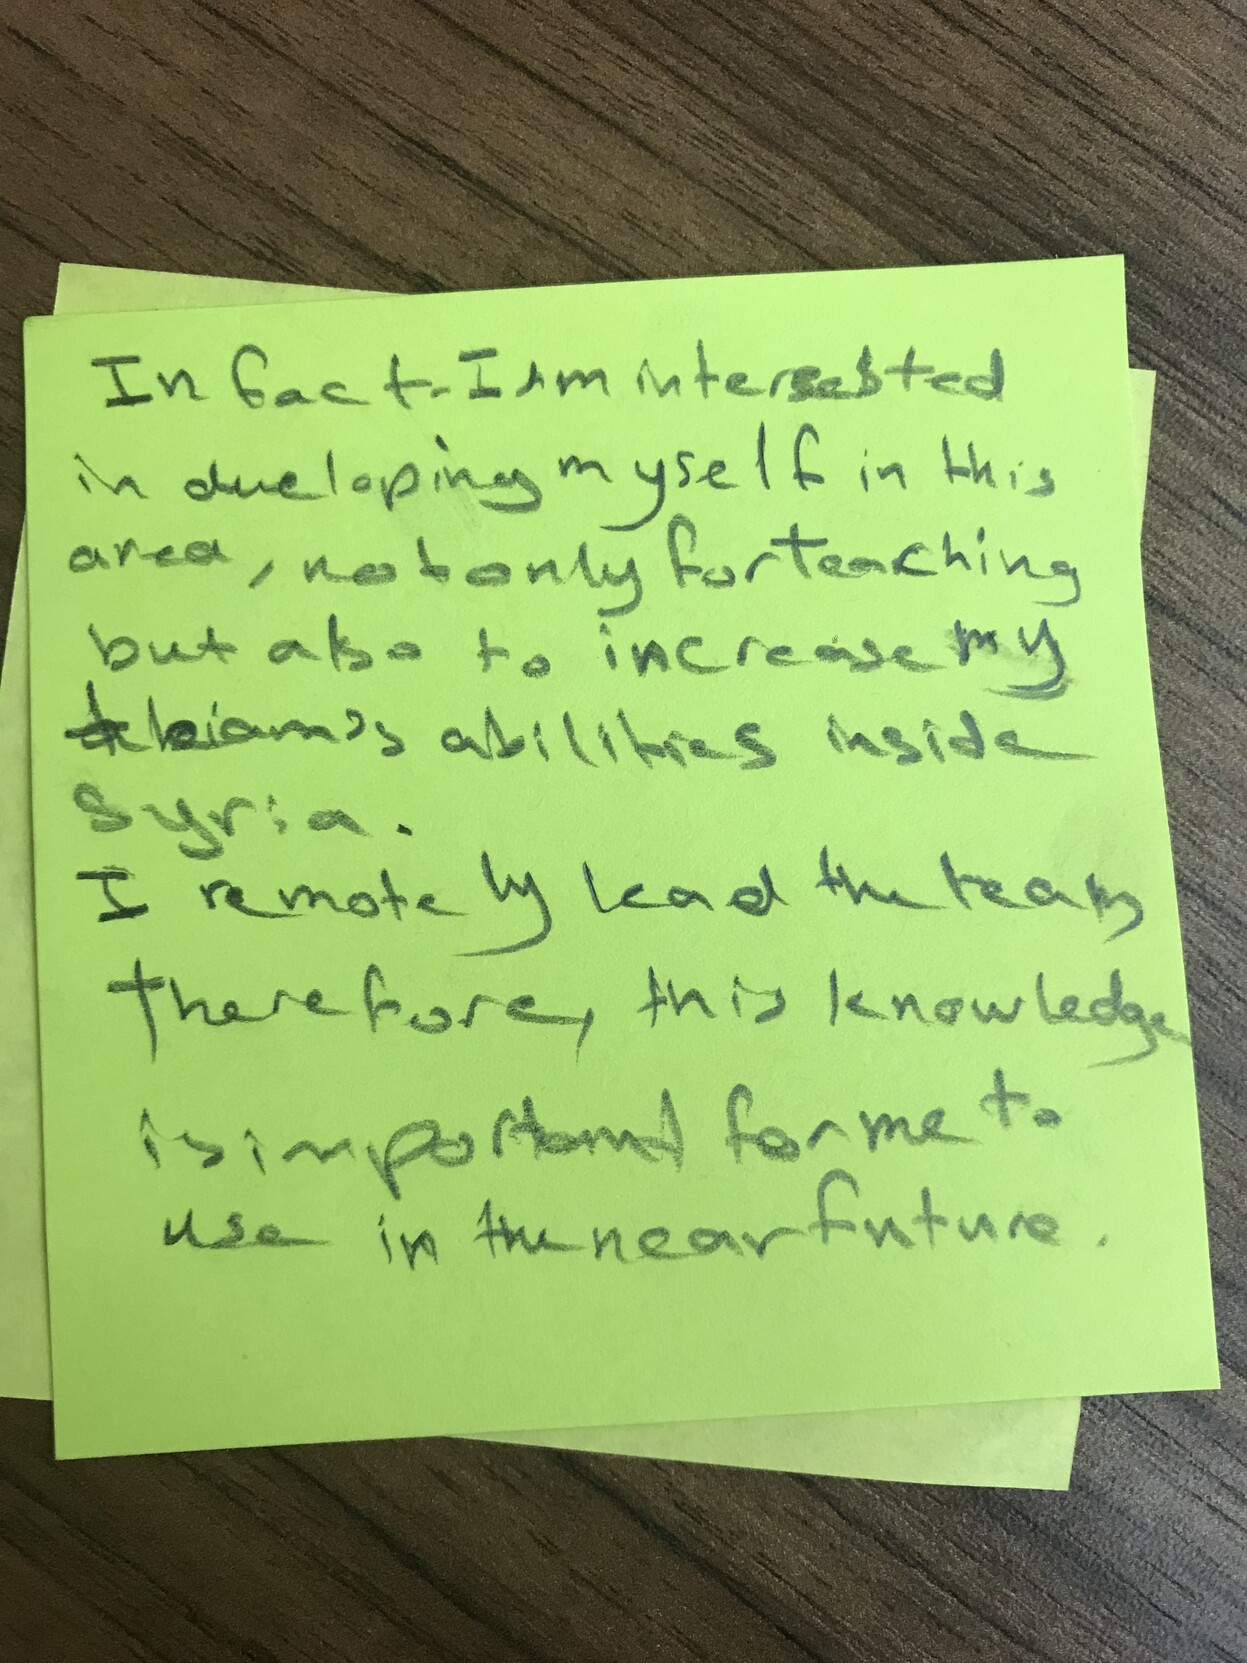 In fact. I am interested
in developing myself in this
area, not only for teaching
but also to increase my
team's abilities inside
Syria.
I remotely lead the team
therefore, this knowledge
is important for me to
use in the near future.